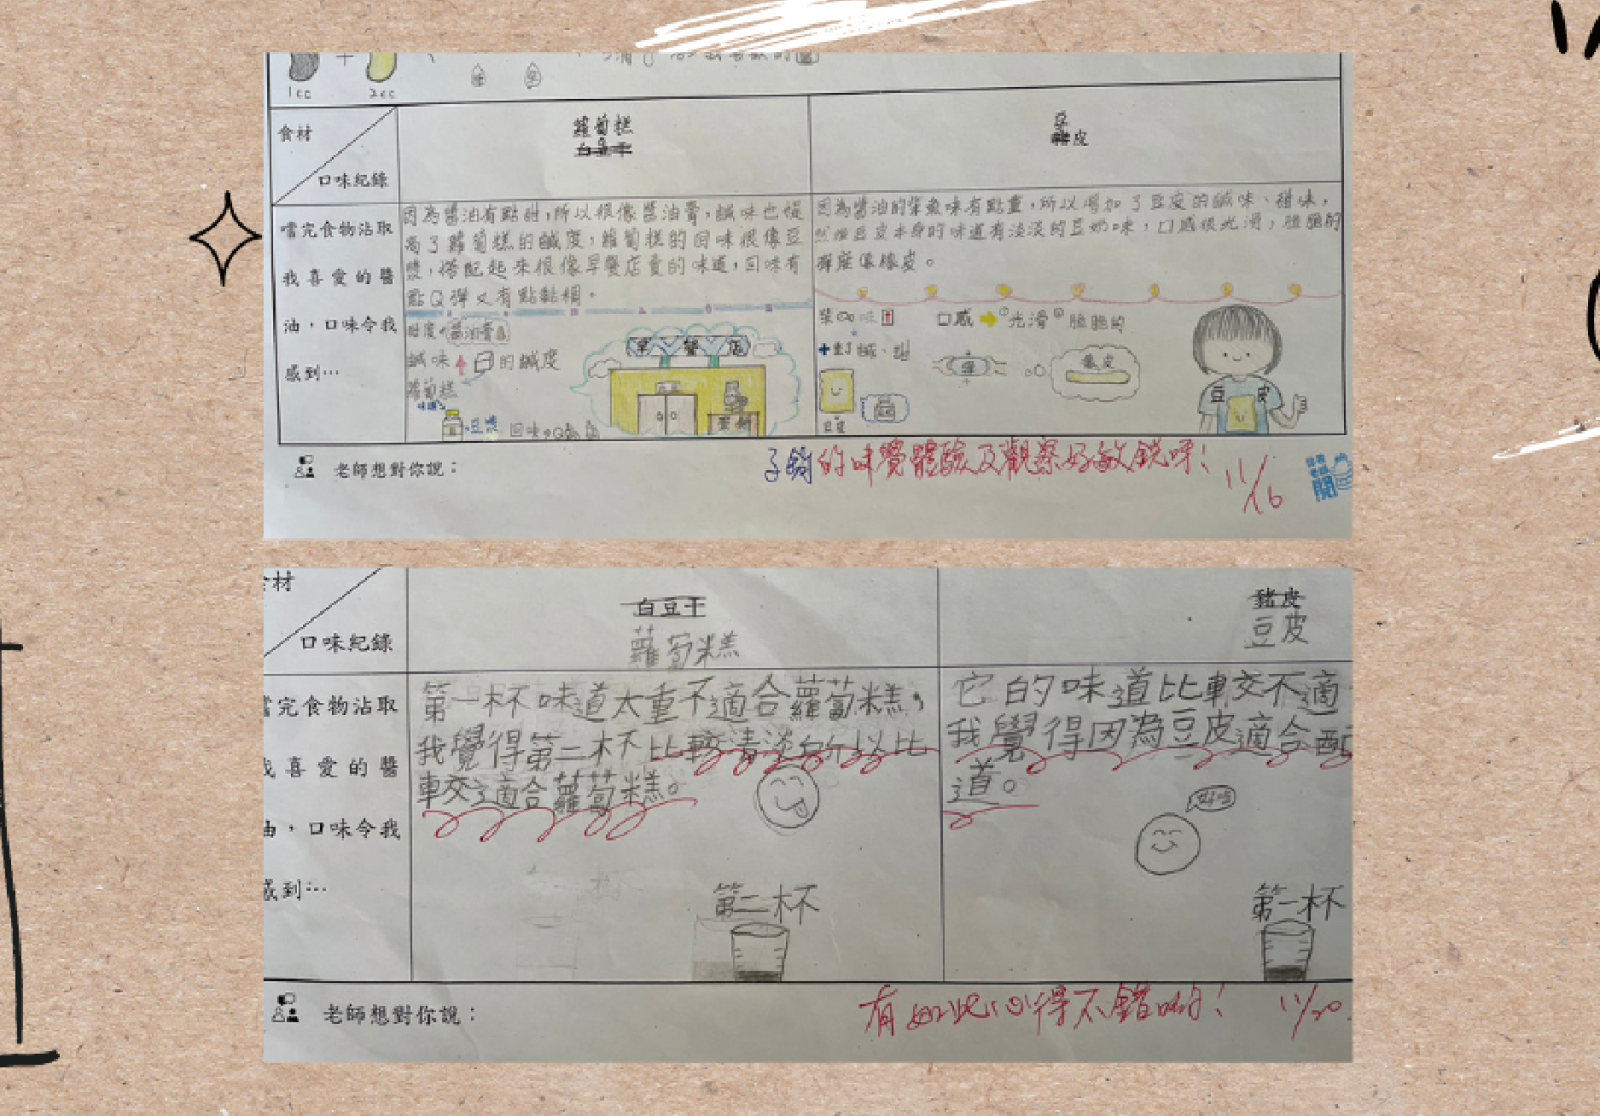 1cc
2cc
食材
口味紀錄
蘿蔔糕
白豆干
豆
豬皮
嚐完食物沾取
我喜愛的醬
油，口味令我
感到…
因為醬油有點甜，所以很像醬油膏，鹹味也提
高了蘿蔔糕的鹹度，蘿蔔糕的回味很像豆
漿，搭配起來很像早餐店賣的味道，口味有
點Q彈又有點黏稠。
因為醬油的柴燒味有點重，所以增加了豆皮的鹹味、甜味，
然後豆皮本身的味道有淡淡的豆奶味，口感很光滑，脆脆的
甜度 醬油膏
鹹味 的鹹度
蘿蔔糕
味道
豆漿
早餐店
口感 ①光滑②脆脆的
鹹、甜
彈
橡皮
豆皮
豆皮
老師想對你說：
的味覺體驗及觀察好敏銳呀！
11/16
食材
口味紀錄
白豆干
蘿蔔糕
豬皮
豆皮
嚐完食物沾取
我喜愛的醬
油，口味令我
感到…
第一杯味道太重不適合蘿蔔糕，
我覺得第二杯比較清淡所以比
較適合蘿蔔糕。
它的味道比較不適
我覺得因為豆皮適合配
道。
好吃
第二杯
第一杯
老師想對你說：
有如此心得不錯喲！
11/20